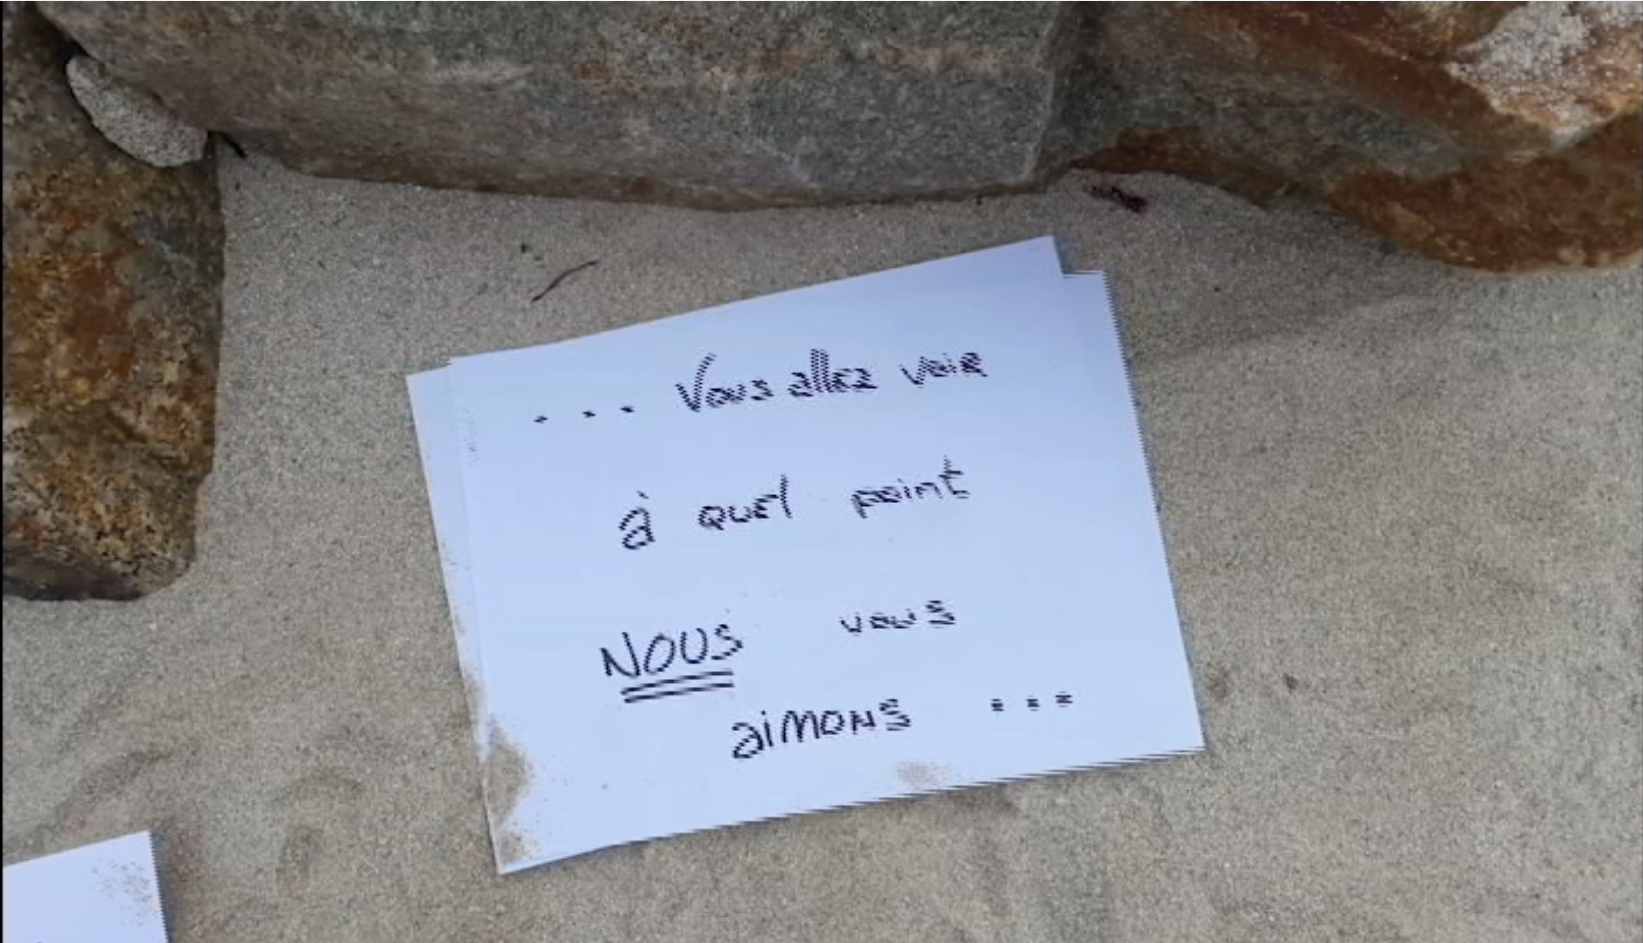 ... Vous allez voir
à quel point
NOUS vous
aimons ...